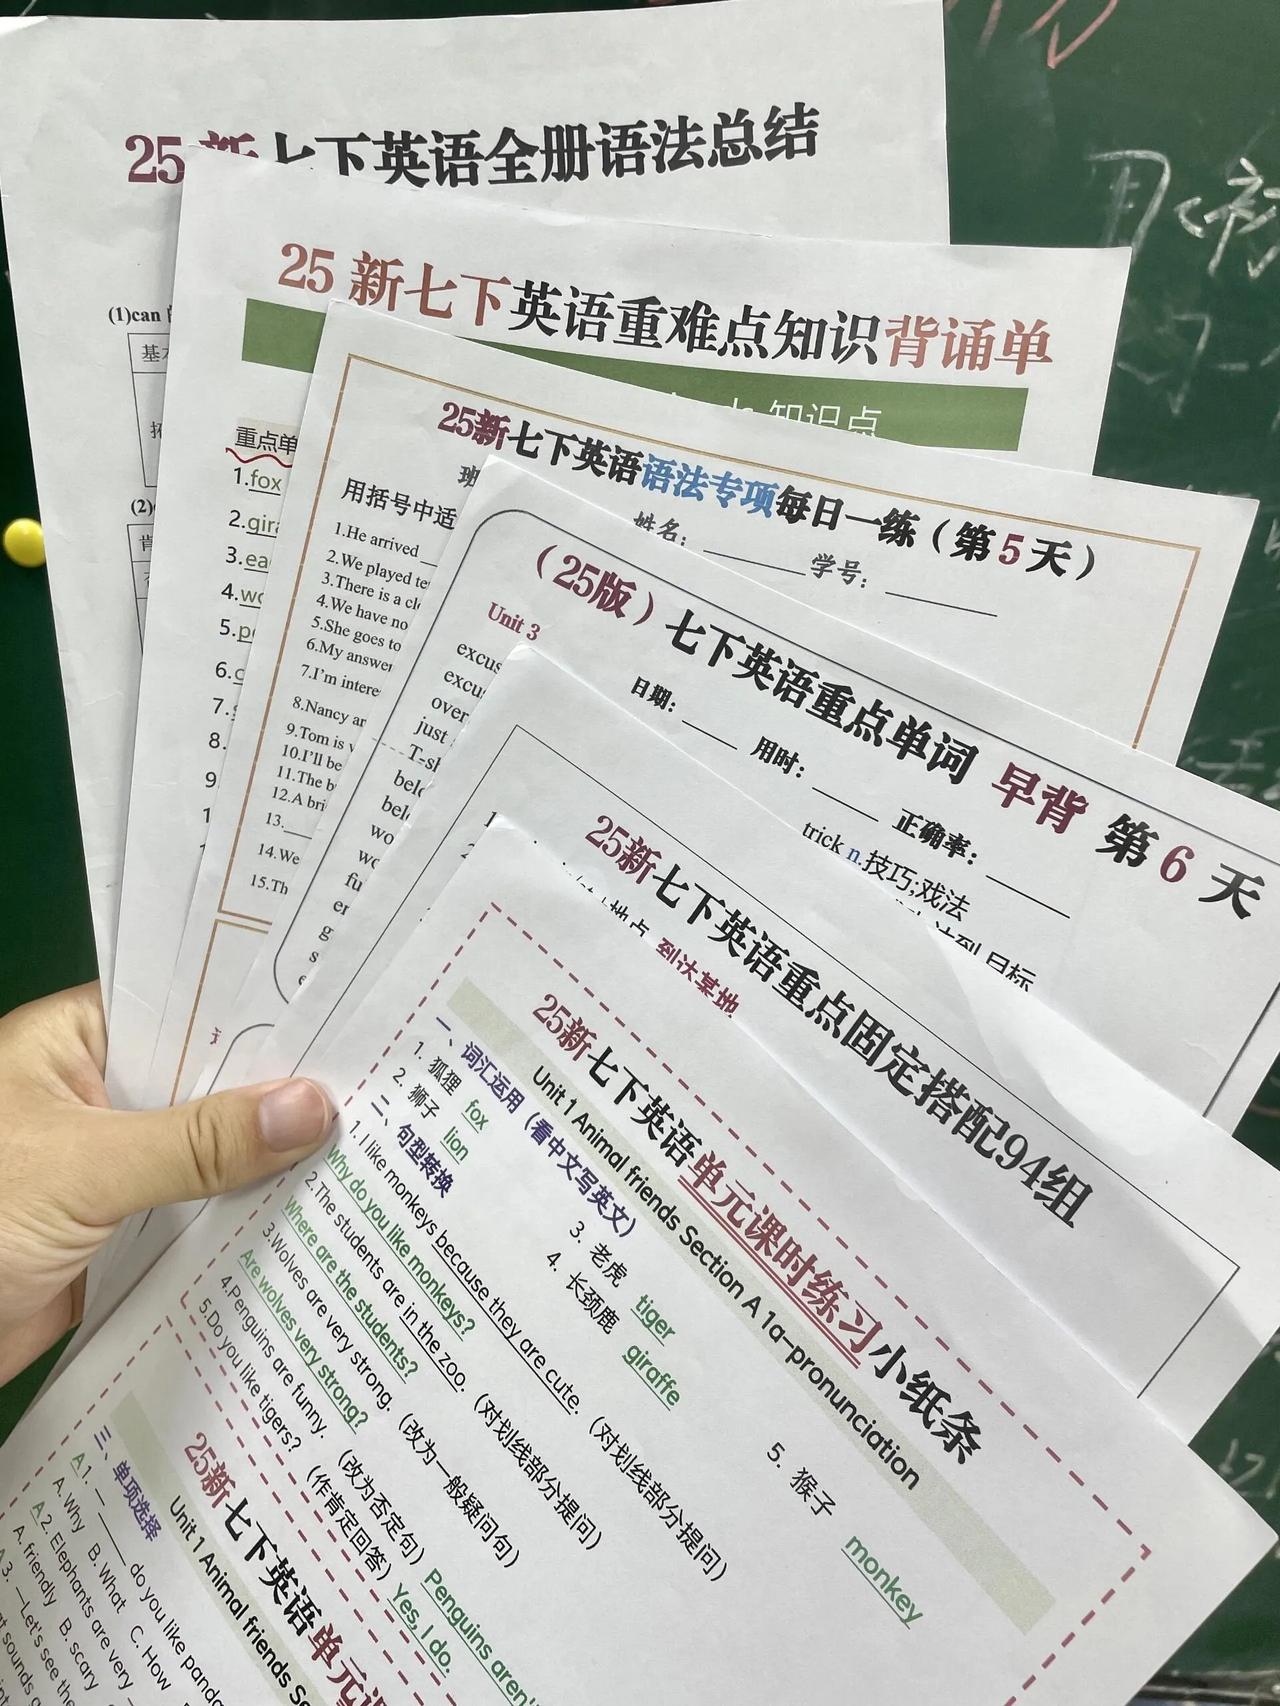 25新七下英语全册语法总结
(1)can
(2)
25 新七下英语重难点知识背诵单
知识点
重点单
1.fox
2.gira
3.ea
4.wo
5.pe
6.c
7.
8.
9
25新七下英语语法专项每日一练（第5天）
班
姓名：
学号：
用括号中适
1.He arrived
2.We played te
3.There is a cl
4.We have no
5.She goes to
6.My answer
7.I'm intere
8.Nancy ar
9.Tom is
10.I'll be
11.The b
12.A bri
13.
14.We
15.Th
（25版）七下英语重点单词 早背 第6天
Unit 3
日期：
用时：
正确率：
excus
excu
over
just
T-sh
belo
bel
wo
wo
fu
er
g
s
trick n.技巧;戏法
达到目标
25新七下英语重点固定搭配94组
地点 到达某地
25新七下英语单元课时练习小纸条
Unit 1 Animal friends Section A 1a-pronunciation
一、词汇运用（看中文写英文）
1. 狐狸 fox
2. 狮子 lion
3. 老虎 tiger
4. 长颈鹿 giraffe
5. 猴子 monkey
二、句型转换
1. I like monkeys because they are cute.（对划线部分提问）
Why do you like monkeys?
2.The students are in the zoo.（对划线部分提问）
Where are the students?
3.Wolves are very strong.（改为一般疑问句）
Are wolves very strong?
4.Penguins are funny.（改为否定句）Penguins aren'
5.Do you like tigers?（作肯定回答）Yes, I do.
25新七下英语单元课
Unit 1 Animal friends Se
三、单项选择
A 1. — ____ do you like panda
A. Why B. What C. How
A 2. Elephants are very
A. friendly B. scary
A 3. —Let's see the
at sounds